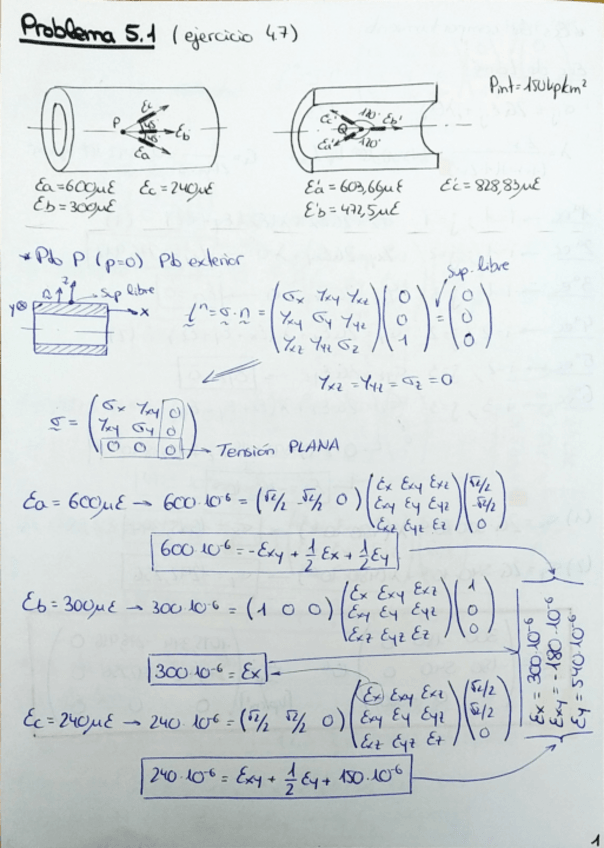 Problema 5.1 (ejercicio 4.7)
Pint = 150 kp/cm²
P εc 45° εb 45° εa
εc' 120° Q εb' εa' 120°
εa = 600με εc = 240με
εb = 300με
ε'a = 603,66με ε'c = 828,83με
ε'b = 472,5με
* Pto P (p=0) Pto exterior
n z Sup libre
y x
t^n = σ·n = (σx γxy γxz; γxy σy γyz; γxz γyz σz) (0; 0; 1) = (0; 0; 0)
Sup. libre
γxz = γyz = σz = 0
σ = (σx γxy 0; γxy σy 0; 0 0 0) → Tensión PLANA
εa = 600με → 600·10⁻⁶ = (√2/2 -√2/2 0) (εx εxy εxz; εxy εy εyz; εxz εyz εz) (√2/2; -√2/2; 0)
600·10⁻⁶ = -εxy + 1/2 εx + 1/2 εy
εb = 300με → 300·10⁻⁶ = (1 0 0) (εx εxy εxz; εxy εy εyz; εxz εyz εz) (1; 0; 0)
300·10⁻⁶ = εx
εc = 240με → 240·10⁻⁶ = (√2/2 √2/2 0) (εx εxy εxz; εxy εy εyz; εxz εyz εz) (√2/2; √2/2; 0)
240·10⁻⁶ = εxy + 1/2 εy + 150·10⁻⁶
εx = 300·10⁻⁶
εxy = -180·10⁻⁶
εy = 540·10⁻⁶
1